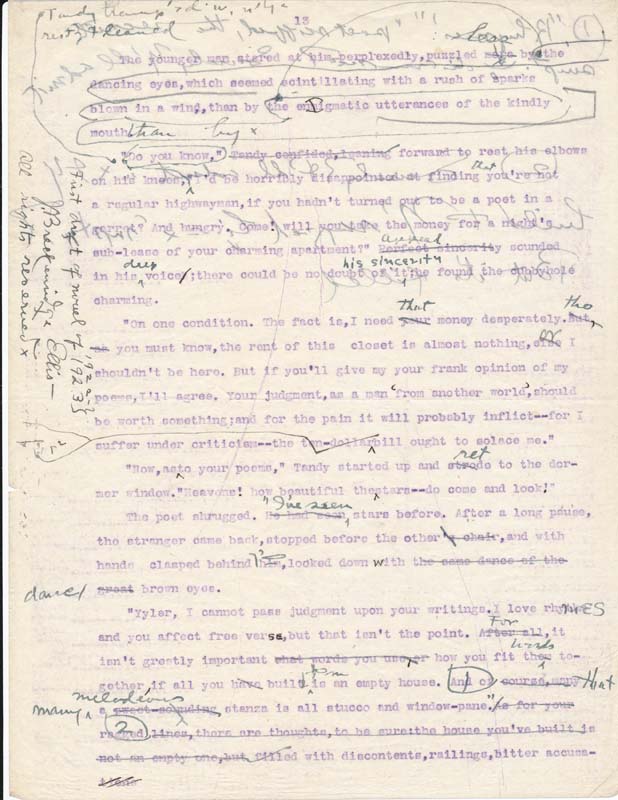 13
The younger man, stared at him perplexedly, puzzled by the
dancing eyes, which seemed scintillating with a rush of sparks
blown in a wind, than by the enigmatic utterances of the kindly
mouth.
than by x
"Do you know," Tandy confided, leaning forward to rest his elbows
that
on his knees, "I'd be horribly disappointed at finding you're not
a regular highwayman, if you hadn't turned out to be a poet in a
garret? And hungry. Come! will you take the money for a night's
sub-lease of your charming apartment?" Perfect sincerity sounded
deep his sincerity
in his voice; there could be no doubt of it he found the cubbyhole
charming.
that tho
"On one condition. The fact is, I need your money desperately. But,
as you must know, the rent of this closet is almost nothing, else I
shouldn't be here. But if you'll give my your frank opinion of my
poems, I'll agree. Your judgment, as a man "from another world", should
be worth something; and for the pain it will probably inflict--for I
suffer under criticism--the ten-dollar bill ought to solace me."
ret
"Now, as to your poems," Tandy started up and strode to the dor-
mer window. "Heavens! how beautiful the stars--do come and look!"
"I've seen
The poet shrugged. He had seen stars before. After a long pause,
the stranger came back, stopped before the other's chair, and with
hands clasped behind him, looked down with the same dance of the
great brown eyes.
"Tyler, I cannot pass judgment upon your writings. I love rhymes
and you affect free verse, but that isn't the point. After all, it
For
words
isn't greatly important what words you use, or how you fit them to-
gether if all you have built is an empty house. And of course, many that
many melodious
a sweet-sounding stanza is all stucco and window-pane. In for your
2
ragged lines, there are thoughts, to be sure: the house you've built is
not an empty one, but filled with discontents, railings, bitter accusa-
tions
First draft of novel of 1922-1923
J Breckenridge Ellis-
All rights reserved x